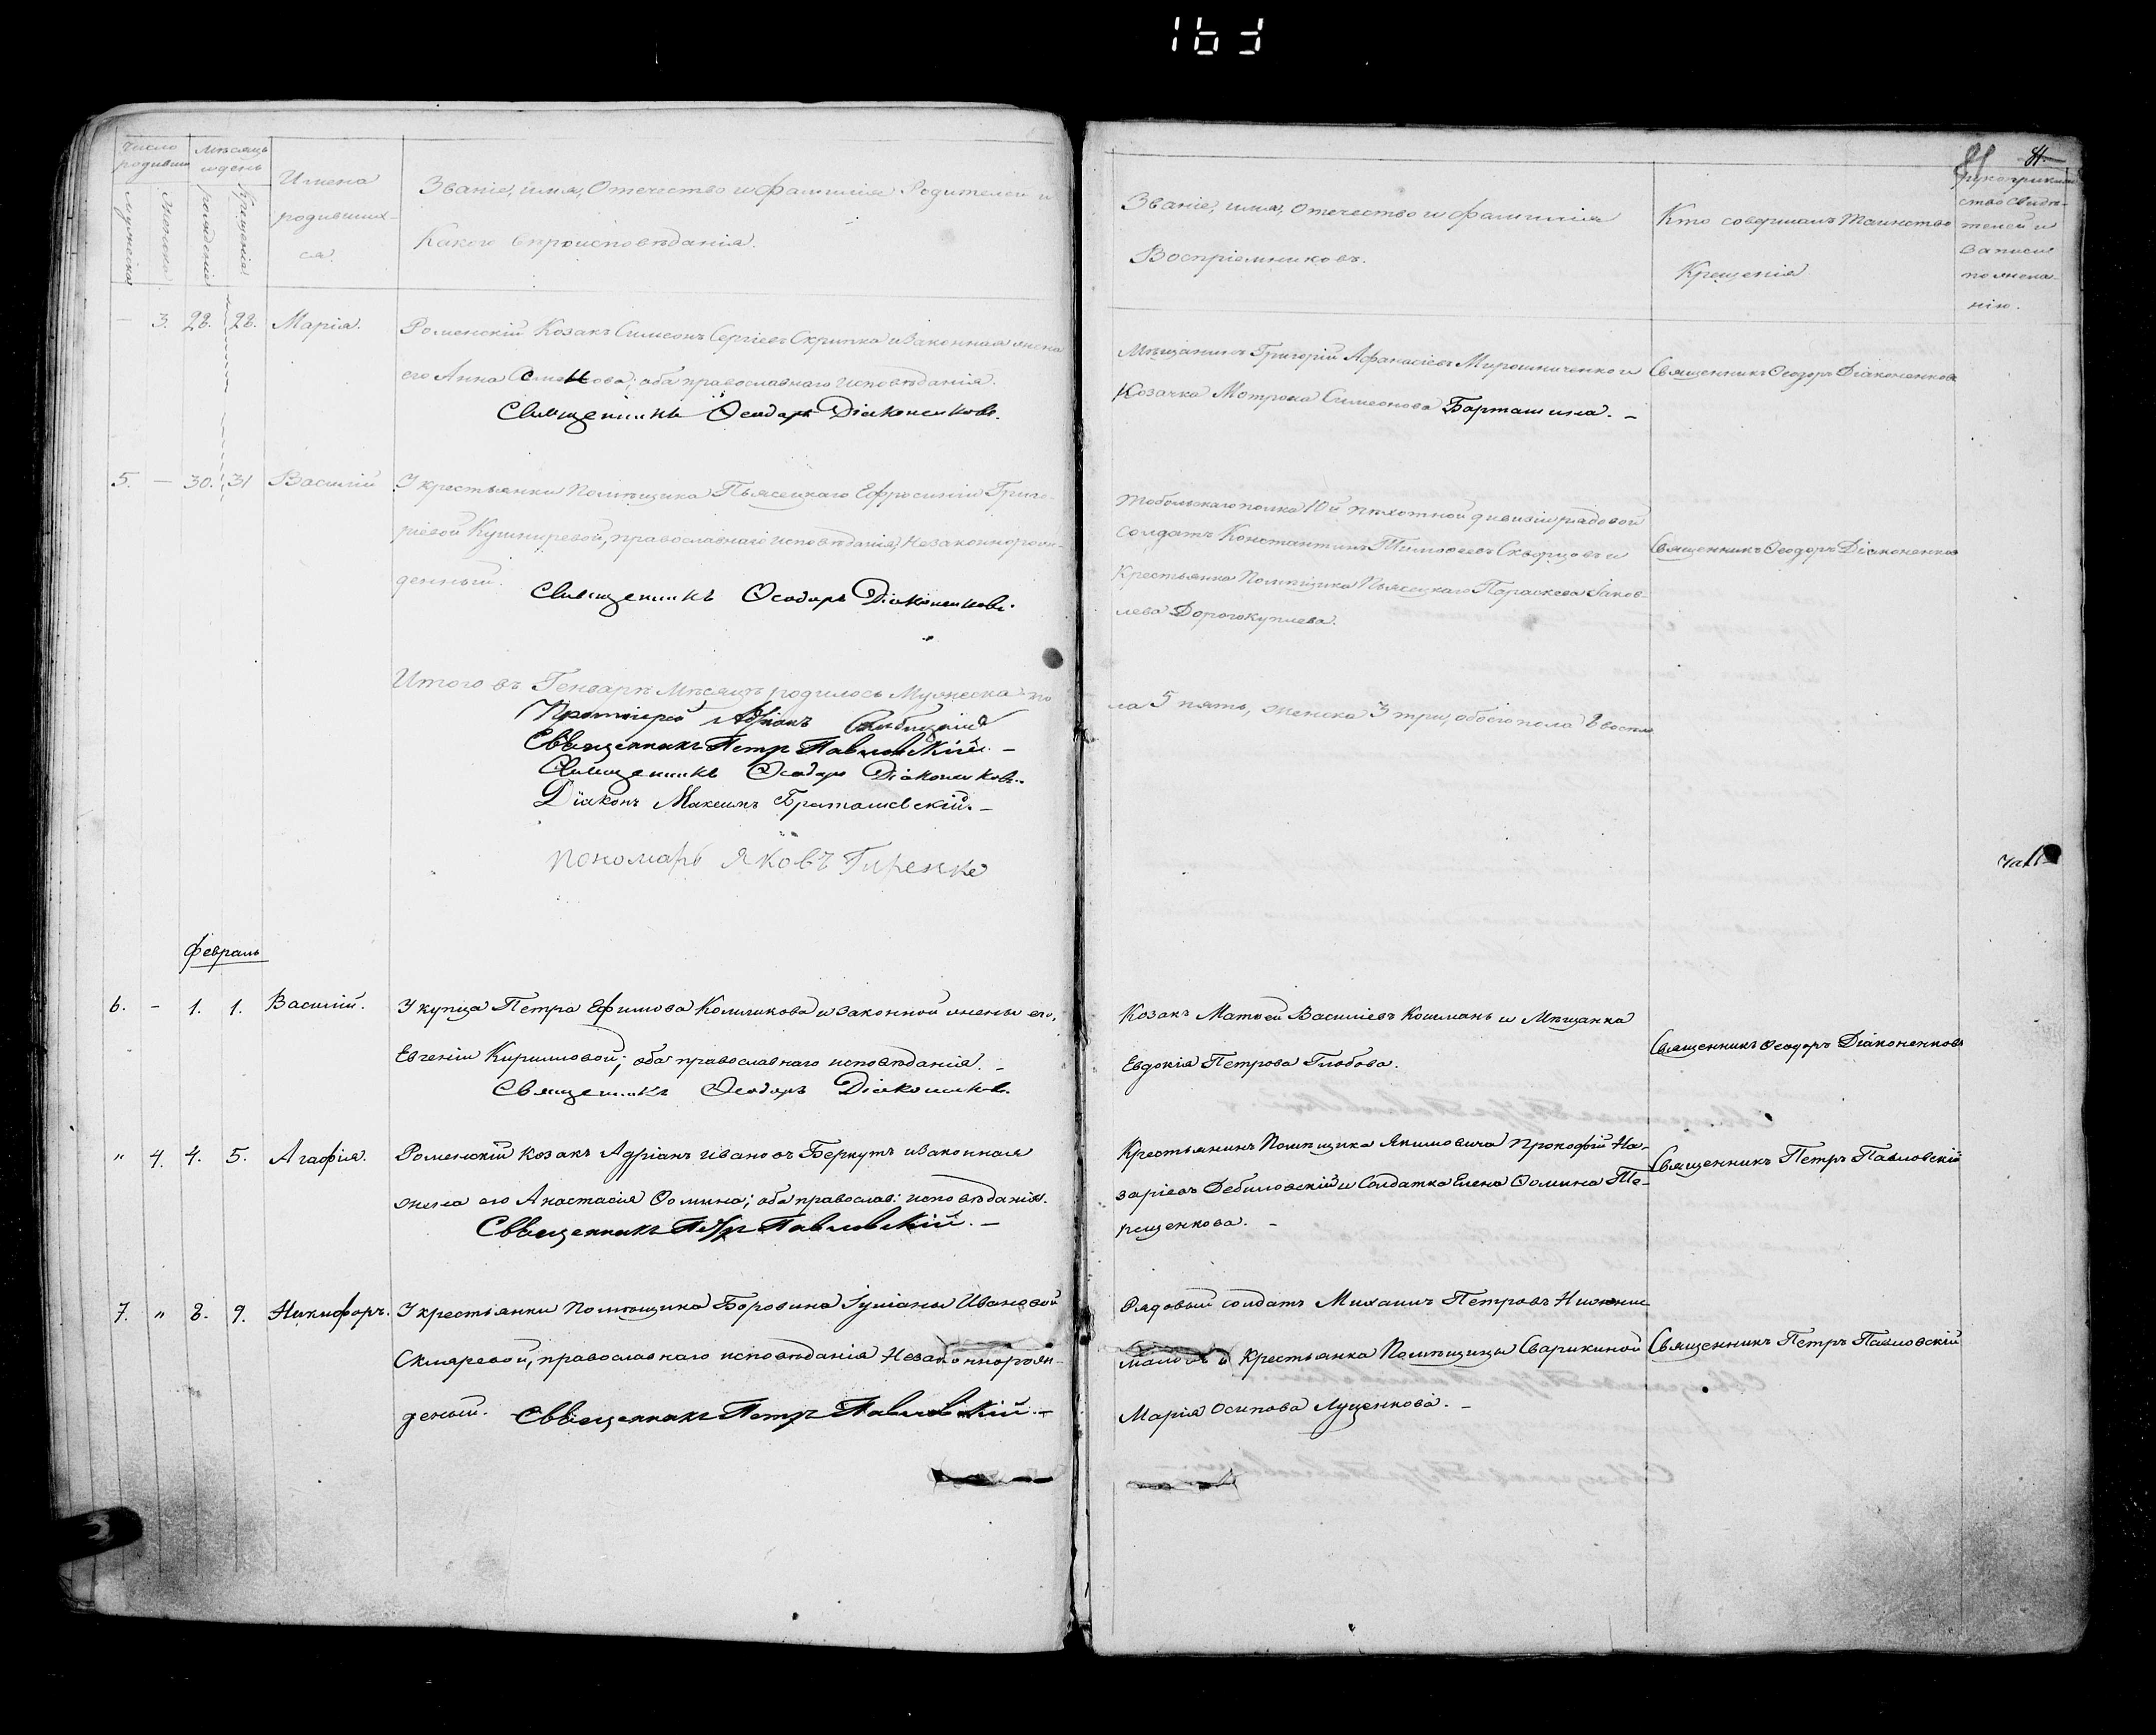 163
81 81
Число родивших
Мѣсяцъ и день
Мужеска
Женска
рожденія
Крещенія
Имена родивших-
ся.
Званіе, имя, Отечество и фамилія Родителей и
Какого вѣроисповѣданія.
Званіе, имя, Отечество и фамилія
Воспріемниковъ.
Кто совершалъ Таинство
Крещенія
рукоприклад-
ство Свидѣ-
телей и
Записи
по жела-
нію.
— 3. 28. 28. Марія.
Роменскій Козакъ Симеонъ Сергіевъ Скрипка и Законная жена
его Анна Семенова; оба православнаго исповѣданія.
Священникъ Ѳеодоръ Діаконенковъ.
Мѣщанинъ Григорій Афанасіевъ Мирошниченко и
Козачка Мотрона Симеонова Барташина. –
Священникъ Ѳеодоръ Діаконенковъ
5. — 30. 31 Василій
У крестьянки Помѣщика Пьясецкаго Ефросиніи Григо-
ріевой Кушниревой, православнаго исповѣданія, Незаконнорож-
денный.
Священникъ Ѳеодоръ Діаконенковъ.
Тобольскаго полка 10й пѣхотной дивизіи рядовой
солдатъ Константинъ Тимоѳеевъ Скворцовъ и
Крестьянка Помѣщика Пьясецкаго Параскева Іаков-
лева Дорогокуплева.
Священникъ Ѳеодоръ Діаконенковъ
Итого въ Генварѣ Мѣсяцѣ родилось Мужеска по
ла 5 пять, женска 3 три, обоего пола 8 восемь
Протоіерей Адріанъ
Священникъ Петръ Павловскій. –
Священникъ Ѳеодоръ Діаконенковъ.
Діаконъ Максимъ Браташевскій. –
пономарь Яковъ Гиренко
февраль
6. – 1. 1. Василій.
У купца Петра Ефимова Колиликова и законной жены его,
Евгеніи Кирилловой; оба православнаго исповѣданія. –
Священникъ Ѳеодоръ Діаконенковъ.
Козакъ Матѳей Василіевъ Кошманъ и Мѣщанка
Евдокія Петрова Глобова.
Священникъ Ѳеодоръ Діаконенковъ
" 4. 4. 5. Агафія.
Роменскій козакъ Адріанъ Ивановъ Беркутъ и законная
жена его Анастасія Ѳомина; оба православ: исповѣданія.
Священникъ Петръ Павловскій. –
Крестьянинъ Помѣщика Якимовича Прокофій На-
заріевъ Дебиловскій и Солдатка Елена Ѳомина Те-
рещенкова. –
Священникъ Петръ Павловскій
7. " 8. 9. Никифоръ.
У крестьянки Помѣщика Боровина Іуліаны Ивановой
Скляревой, православнаго исповѣданія Незаконнорож-
деный. Священникъ Петръ Павловскій. –
Рядовый солдатъ Михаилъ Петровъ
и Крестьянка Помѣщицы Сварикиной
Марія Осипова Луценкова. –
Священникъ Петръ Павловскій